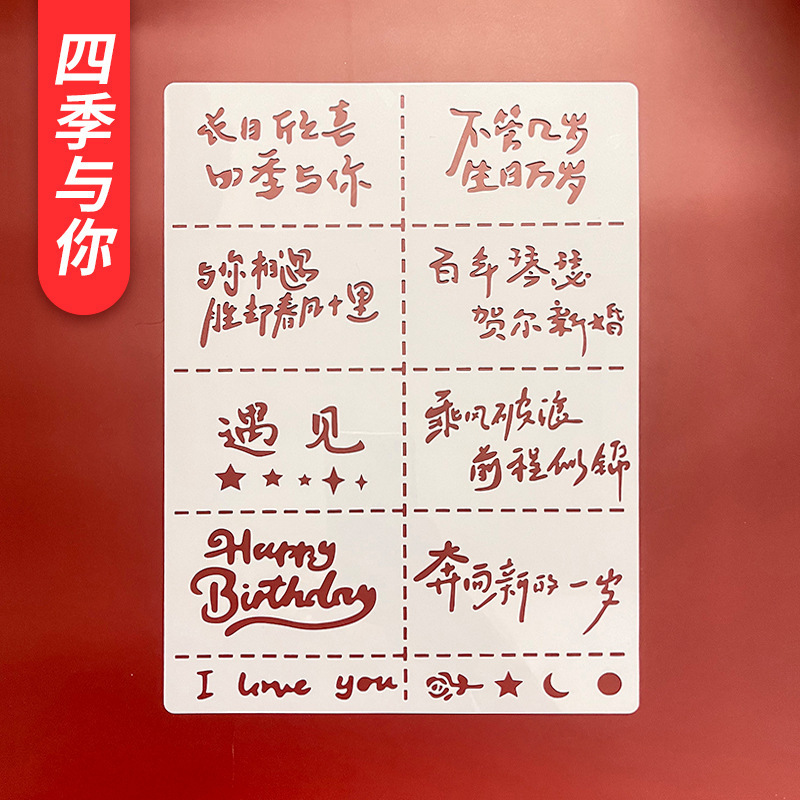 四季与你
长日欣喜
四季与你
不管几岁
生日万岁
与你相遇
胜却春风十里
百年琴瑟
贺尔新婚
遇见
乘风破浪
前程似锦
Happy
Birthday
奔向新的一岁
I love you